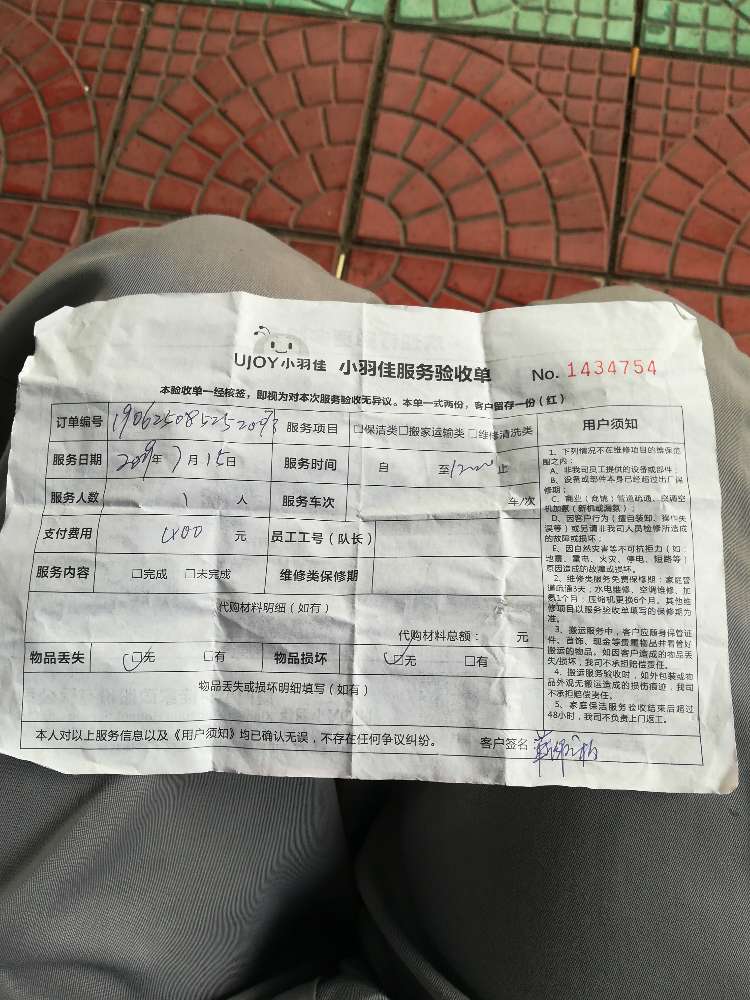 UJOY小羽佳 小羽佳服务验收单 No. 1434754
本验收单一经核签，即视为对本次服务验收无异议。本单一式两份，客户留存一份（红）
订单编号 服务项目 □保洁类□搬家运输类 □维修清洗类
服务日期 2019年7月15日 服务时间 自 至12:00止
服务人数 1 人 服务车次 车/次
支付费用 400 元 员工工号（队长）
服务内容 □完成 □未完成 维修类保修期
代购材料明细（如有）
代购材料总额： 元
物品丢失 □无 □有 物品损坏 □无 □有
物品丢失或损坏明细填写（如有）
本人对以上服务信息以及《用户须知》均已确认无误，不存在任何争议纠纷。 客户签名
用户须知
1、下列情况不在维修项目的维保范
围之内：
A、非我司员工提供的设备或部件；
B、设备或部件本身已经超过出厂保
修期；
C、商业（商铺）管道疏通、空调空
机加氨（新机或漏氨）；
D、因客户行为（擅自装卸、操作失
误等）或另请非我司人员检修所造成
的故障或损坏；
E、因自然灾害等不可抗拒力（如：
地震、雷电、火灾、停电、短路等）
原因造成的故障或损坏。
2、维修类服务免费保修期：家庭管
道疏通3天，水电维修、空调维修、加
氨1个月；压缩机更换6个月，其他维
修项目以服务验收单填写的保修期为
准。
3、搬运服务中，客户应随身保管证
件、首饰、现金等贵重物品并看管好
搬运的物品，如因客户造成的物品丢
失/损坏，我司不承担赔偿责任。
4、搬运服务验收时，如外包装或物
品外观无搬运造成的损伤痕迹，我司
不承担赔偿责任。
5、家庭保洁服务验收结束后超过
48小时，我司不负责上门返工。